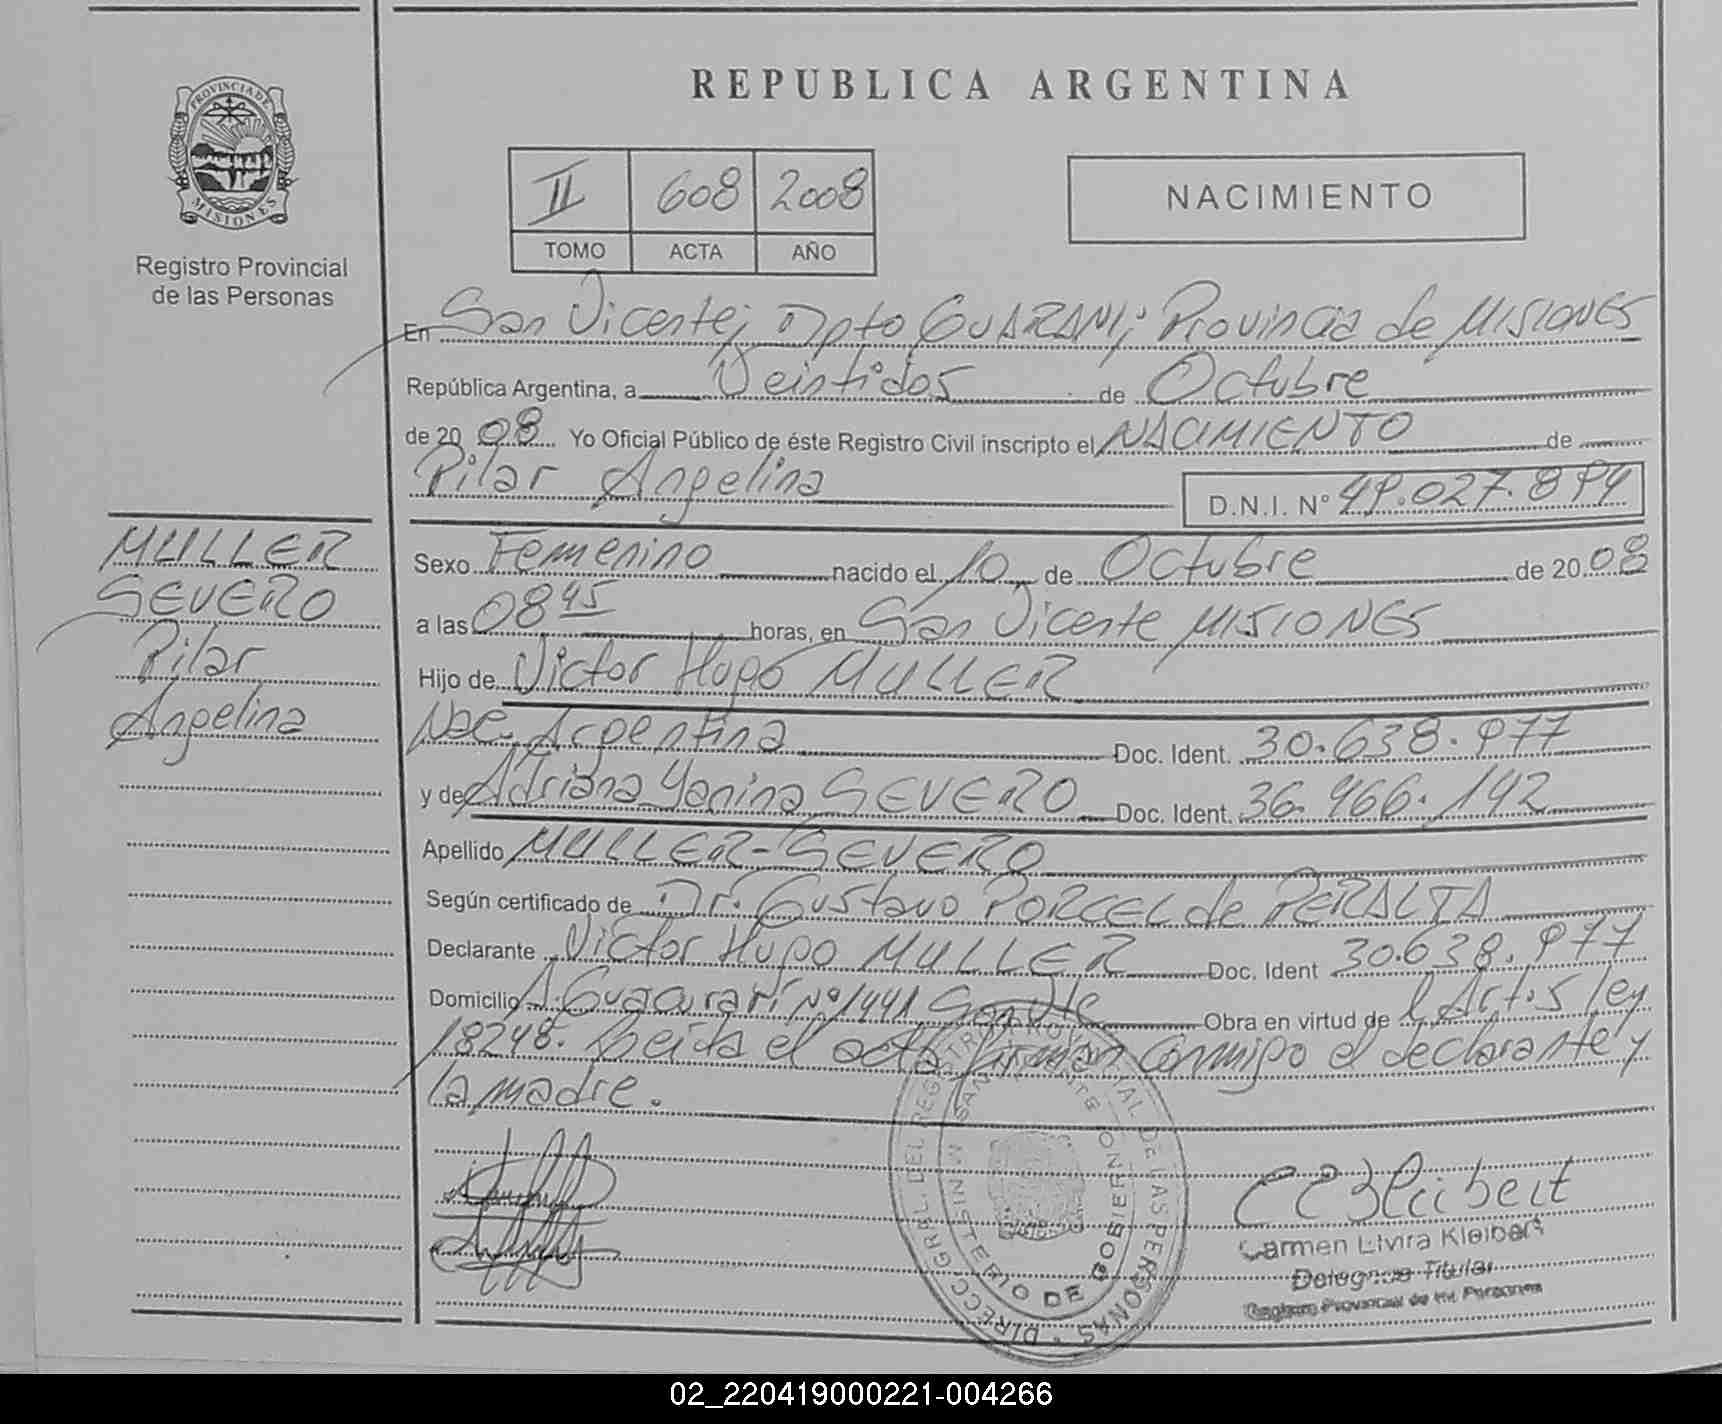 REPUBLICA ARGENTINA
PROVINCIA DE
MISIONES
Registro Provincial
de las Personas
II 608 2008
TOMO ACTA AÑO
NACIMIENTO
En San Vicente; Dpto GUARANI; Provincia de MISIONES
República Argentina, a Veintidos de Octubre
de 2008 Yo Oficial Público de éste Registro Civil inscripto el NACIMIENTO de
Pilar Angelina D.N.I. N° 49.027.894
MULLER
SEVERO
Pilar
Angelina
Sexo Femenino nacido el 10 de Octubre de 2008
a las 08 45 horas, en San Vicente MISIONES
Hijo de Victor Hugo MULLER
Nac. Argentina Doc. Ident. 30.638.977
y de Adriana Yanina SEVERO Doc. Ident. 36.966.192
Apellido MULLER-SEVERO
Según certificado de Dr. Gustavo PORCEL de PERALTA
Declarante Victor Hugo MULLER Doc. Ident 30.638.977
Domicilio A. Guacurarí N° 1441 San Vte Obra en virtud de l Art. 5 ley
18248. Leida el acta firman conmigo el declarante y
la madre.
DIRECC. GRAL. DEL REGISTRO PROVINCIAL DE LAS PERSONAS
MINISTERIO DE GOBIERNO
Carmen Elvira Kleibert
Delegada Titular
Registro Provincial de las Personas
02_220419000221-004266